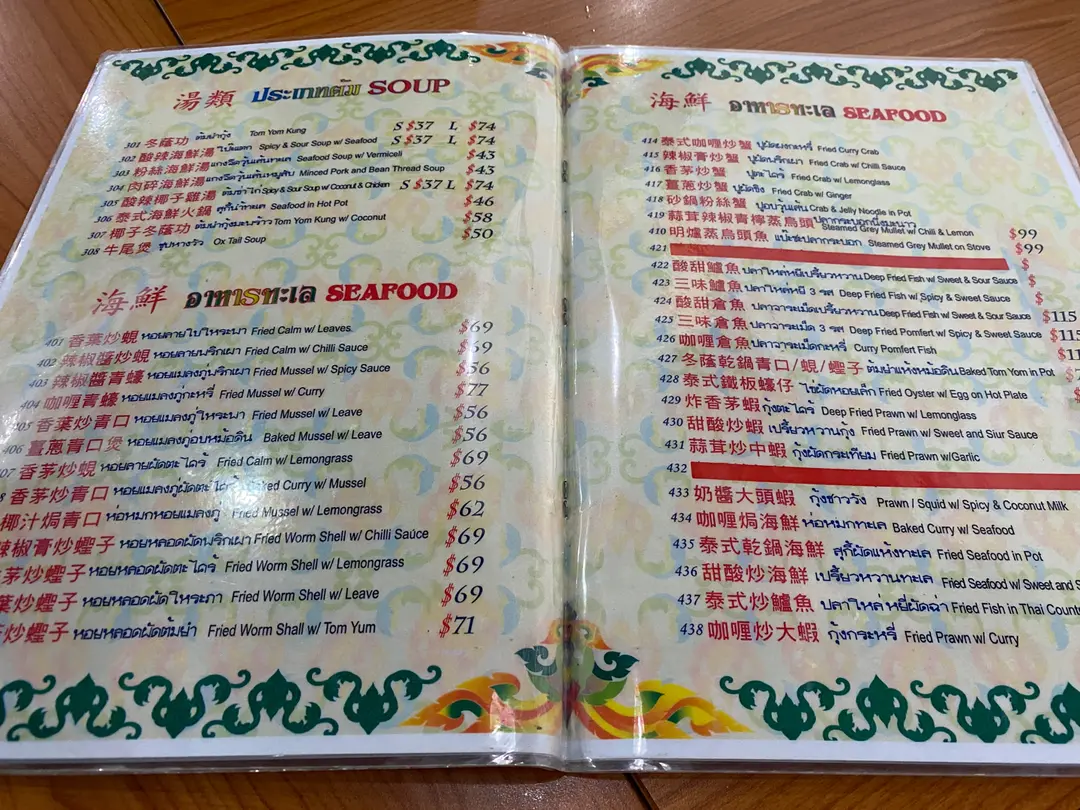 湯類 ประเภทต้ม SOUP
301 冬蔭功 ต้มยำกุ้ง Tom Yom Kung S $37 L $74
302 酸辣海鮮湯 โป๊ะแตก Spicy & Sour Soup w/ Seafood S $37 L $74
303 粉絲海鮮湯 แกงจืดวุ้นเส้นทะเล Seafood Soup w/ Vermiceli $43
304 肉碎海鮮湯 แกงจืดวุ้นเส้นหมูสับ Minced Pork and Bean Thread Soup $43
305 酸辣椰子雞湯 ต้มข่าไก่ Spicy & Sour Soup w/ Coconut & Chicken S $37 L $74
306 泰式海鮮火鍋 สุกี้น้ำทะเล Seafood in Hot Pot $46
307 椰子冬蔭功 ต้มยำกุ้งมะพร้าว Tom Yom Kung w/ Coconut $58
308 牛尾煲 ซุปหางวัว Ox Tail Soup $50
海鮮 อาหารทะเล SEAFOOD
401 香葉炒蜆 หอยลายใบโหระพา Fried Calm w/ Leaves $69
402 辣椒醬炒蜆 หอยลายพริกเผา Fried Calm w/ Chilli Sauce $69
403 辣椒醬青蠔 หอยแมลงภู่พริกเผา Fried Mussel w/ Spicy Sauce $56
404 咖喱青蠔 หอยแมลงภู่กะหรี่ Fried Mussel w/ Curry $77
405 香葉炒青口 หอยแมลงภู่โหระพา Fried Mussel w/ Leave $56
406 薑蔥青口煲 หอยแมลงภู่อบหม้อดิน Baked Mussel w/ Leave $56
07 香茅炒蜆 หอยลายผัดตะไคร้ Fried Calm w/ Lemongrass $69
8 香茅炒青口 หอยแมลงภู่ผัดตะไคร้ Baked Curry w/ Mussel $56
椰汁焗青口 ห่อหมกหอยแมลงภู่ Fried Mussel w/ Lemongrass $62
辣椒膏炒蟶子 หอยหลอดผัดพริกเผา Fried Worm Shell w/ Chilli Sauce $69
茅炒蟶子 หอยหลอดผัดตะไคร้ Fried Worm Shell w/ Lemongrass $69
葉炒蟶子 หอยหลอดผัดโหระภา Fried Worm Shell w/ Leave $69
炒蟶子 หอยหลอดผัดต้มยำ Fried Worm Shall w/ Tom Yum $71
海鮮 อาหารทะเล SEAFOOD
414 泰式咖喱炒蟹 ปูผัดผงกะหรี่ Fried Curry Crab
415 辣椒膏炒蟹 ปูผัดพริกเผา Fried Crab w/ Chilli Sauce
416 香茅炒蟹 ปูตะไคร้ Fried Crab w/ Lemonglass
417 薑蔥炒蟹 ปูผัดขิง Fried Crab w/ Ginger
418 砂鍋粉絲蟹 ปูอบวุ้นเส้น Crab & Jelly Noodle in Pot
419 蒜茸辣椒青檸蒸烏頭 ปลากระบอกนึ่งมะนาว Steamed Grey Mullet w/ Chill & Lemon $99
410 明爐蒸烏頭魚 แป๊ะซะปลากระบอก Steamed Grey Mullet on Stove $99
421 $
422 酸甜鱸魚 ปลาใหล่หยีเปรี้ยวหวาน Deep Fried Fish w/ Sweet & Sour Sauce $
423 三味鱸魚 ปลาใหล่หยี 3 รส Deep Fried Fish w/ Spicy & Sweet Sauce $
424 酸甜倉魚 ปลาจาระเม็ดเปรี้ยวหวาน Deep Fried Fish w/ Sweet & Sour Sauce $115
425 三味倉魚 ปลาจาระเม็ด 3 รส Deep Fried Pomfert w/ Spicy & Sweet Sauce $115
426 咖喱倉魚 ปลาจาระเม็ดกะหรี่ Curry Pomfert Fish $11
427 冬蔭乾鍋青口/蜆/蟶子 ต้มยำแห้งหม้อดิน Baked Tom Yom in Pot
428 泰式鐵板蠔仔 ไข่ผัดหอยเล็ก Fried Oyster w/ Egg on Hot Plate
429 炸香茅蝦 กุ้งตะไคร้ Deep Fried Prawn w/ Lemonglass
430 甜酸炒蝦 เปรี้ยวหวานกุ้ง Fried Prawn w/ Sweet and Siur Sauce
431 蒜茸炒中蝦 กุ้งผัดกระเทียม Fried Prawn w/Garlic
432
433 奶醬大頭蝦 กุ้งซาววัง Prawn / Squid w/ Spicy & Coconut Milk
434 咖喱焗海鮮 ห่อหมกทะเล Baked Curry w/ Seafood
435 泰式乾鍋海鮮 สุกี้ผัดแห้งทะเล Fried Seafood in Pot
436 甜酸炒海鮮 เปรี้ยวหวานทะเล Fried Seafood w/ Sweet and S
437 泰式炒鱸魚 ปลาใหล่หยี่ผัดฉ่า Fried Fish in Thai Count
438 咖喱炒大蝦 กุ้งกระหรี่ Fried Prawn w/ Curry